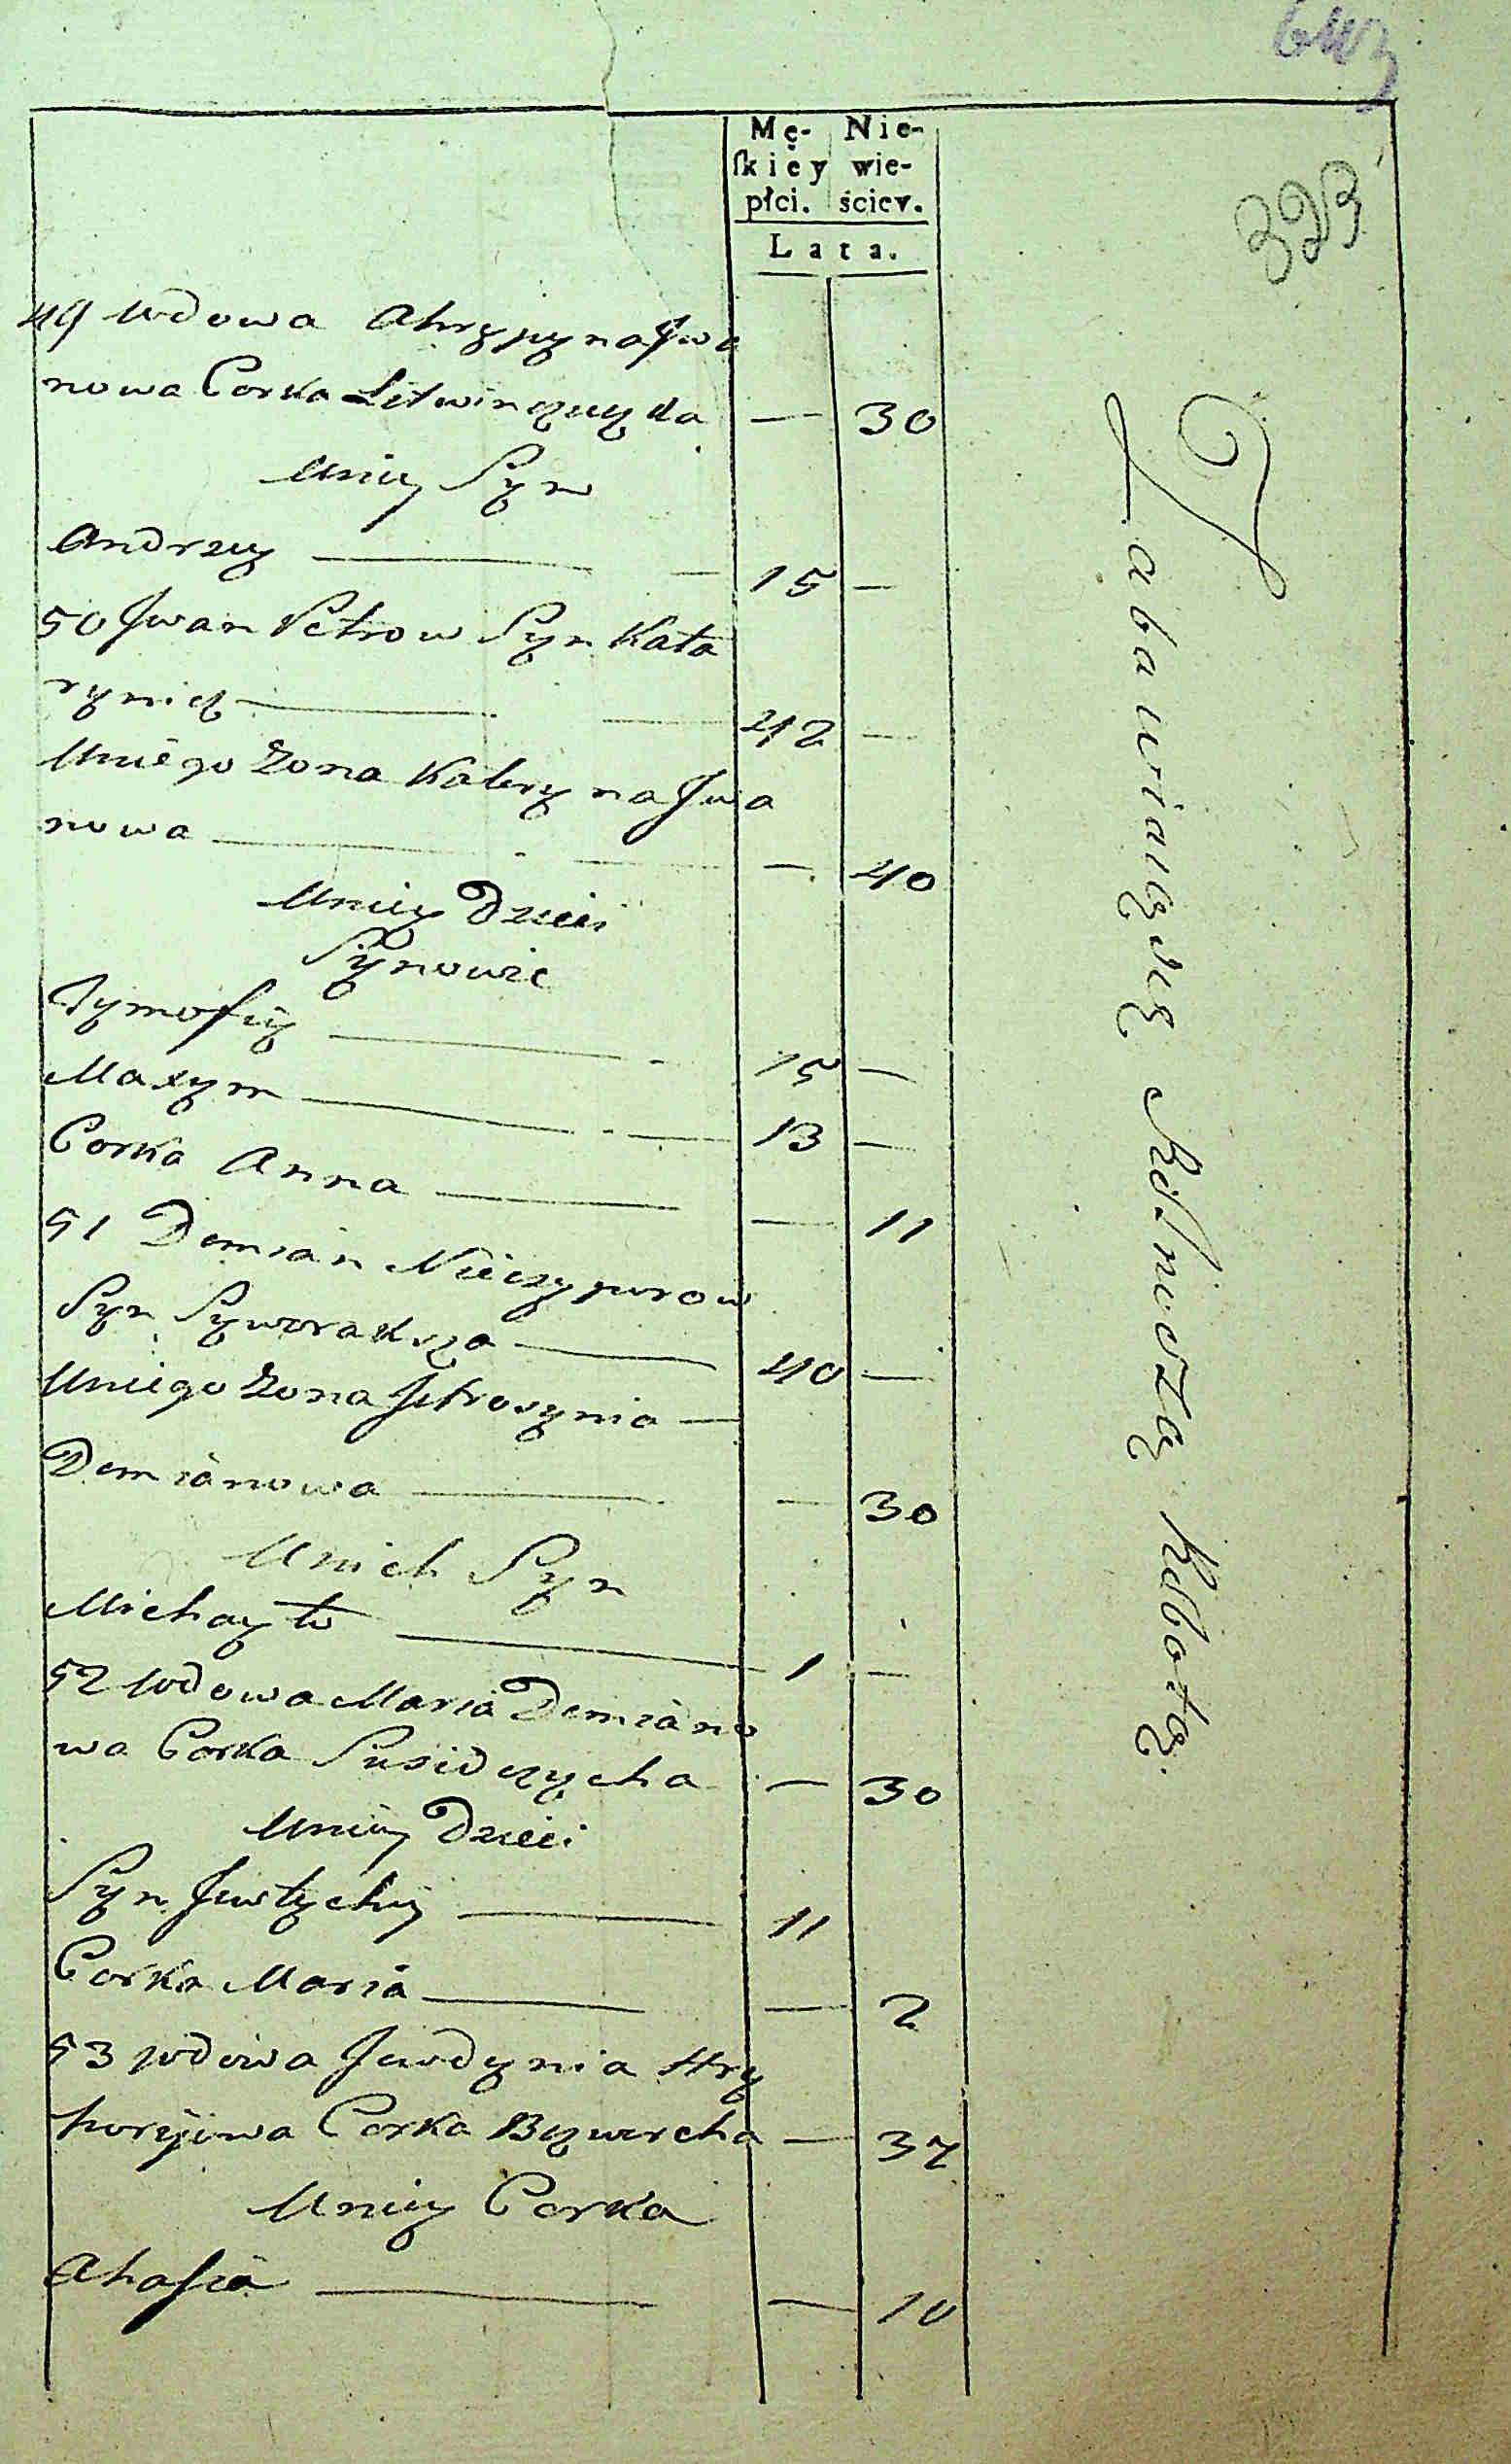 323
Mę- Nie-
ſkiey wie-
płci. ściey.
Lata.
49 Wdowa Ahrypyna Jwa
nowa Corka Litwinczuczka — 30
Uniey Syn
Andrzey — 15 —
50 Jwan Petrow Syn Kata
rynicz — 42 —
Uniego Zona Katryna Jwa
nowa — 40
Uniey Dzieci
Synowie
Tymofiy — 15 —
Maxym — 13 —
Corka Anna — 11
51 Demian Nieczyporow
Syn Syworaksza — 40 —
Uniego Zona Jefrosynia —
Demianowa — 30
Unich Syn
Michayło — 1 —
52 Wdowa Maria Demiano
wa Corka Susidczycha — 30
Uniey Dzieci
Syn Jewtychiy — 11
Corka Maria — 2
53 Wdowa Jewdynia Hry
horyiowa Corka — 37
Uniey Corka
Ahafia — 10
Zabawiaiączyę Rolniczą Robotą.